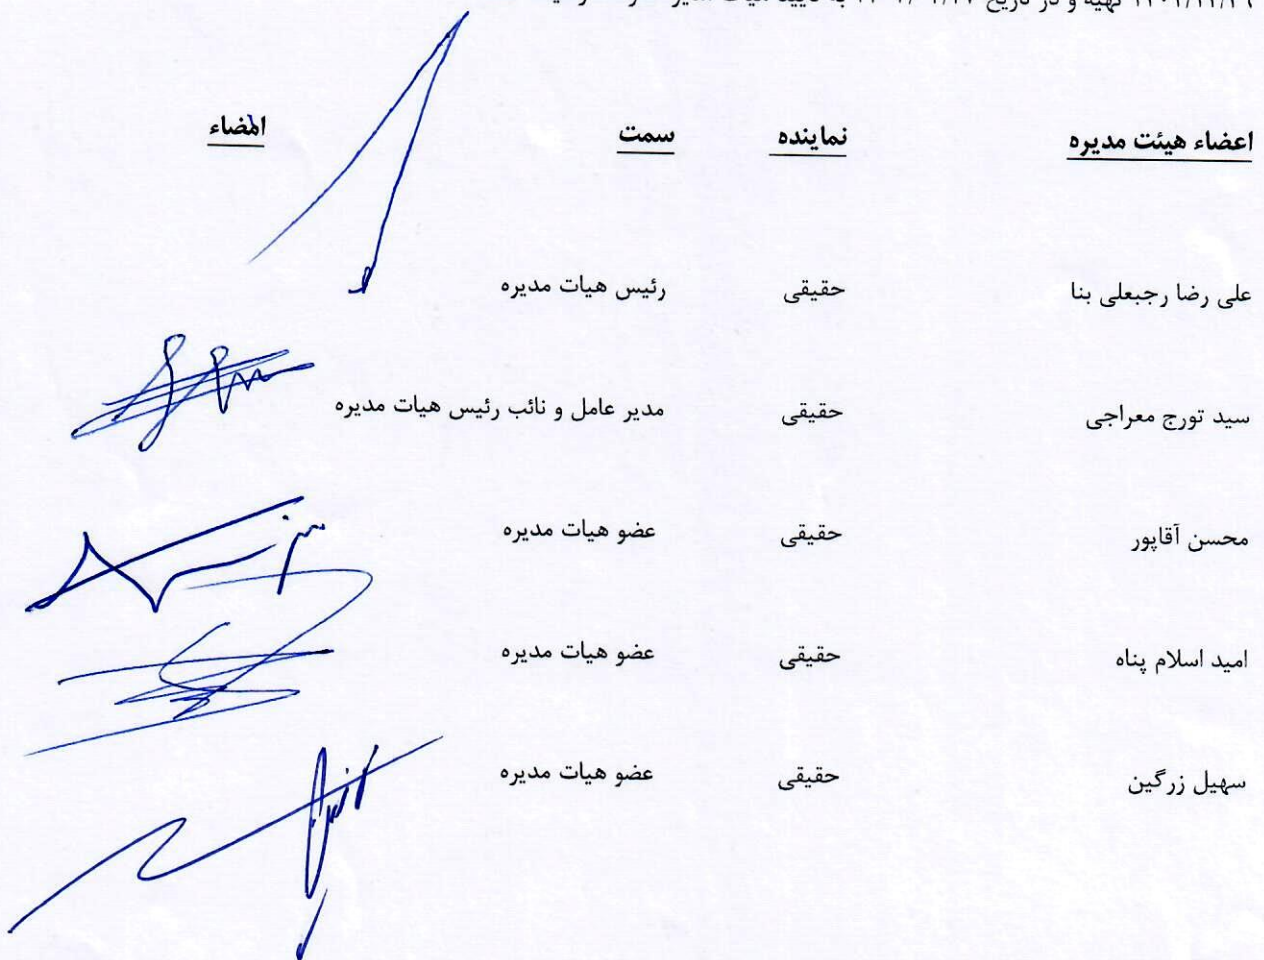 تهیه و در تاریخ
اعضاء هیئت مدیره نماینده سمت امضاء
علی رضا رجبعلی بنا حقیقی رئیس هیات مدیره
سید تورج معراجی حقیقی مدیر عامل و نائب رئیس هیات مدیره
محسن آقاپور حقیقی عضو هیات مدیره
امید اسلام پناه حقیقی عضو هیات مدیره
سهیل زرگین حقیقی عضو هیات مدیره